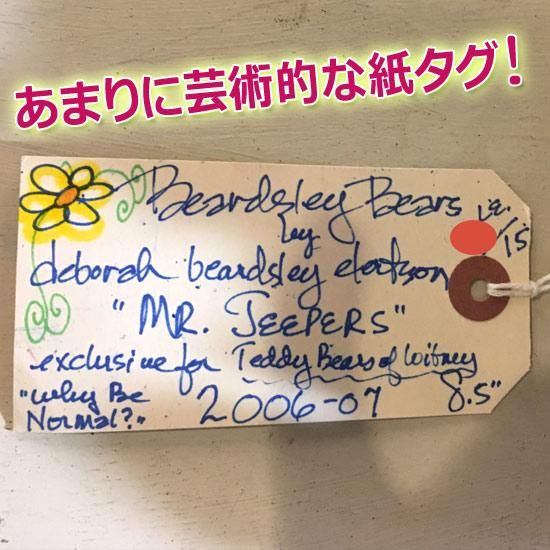 あまりに芸術的な紙タグ！
Beardsley Bears
by
deborah beardsley dotson
"MR. JEEPERS"
exclusive for Teddy Bears of Witney
"Why Be
Normal?"
2006-07
8.5"
/15